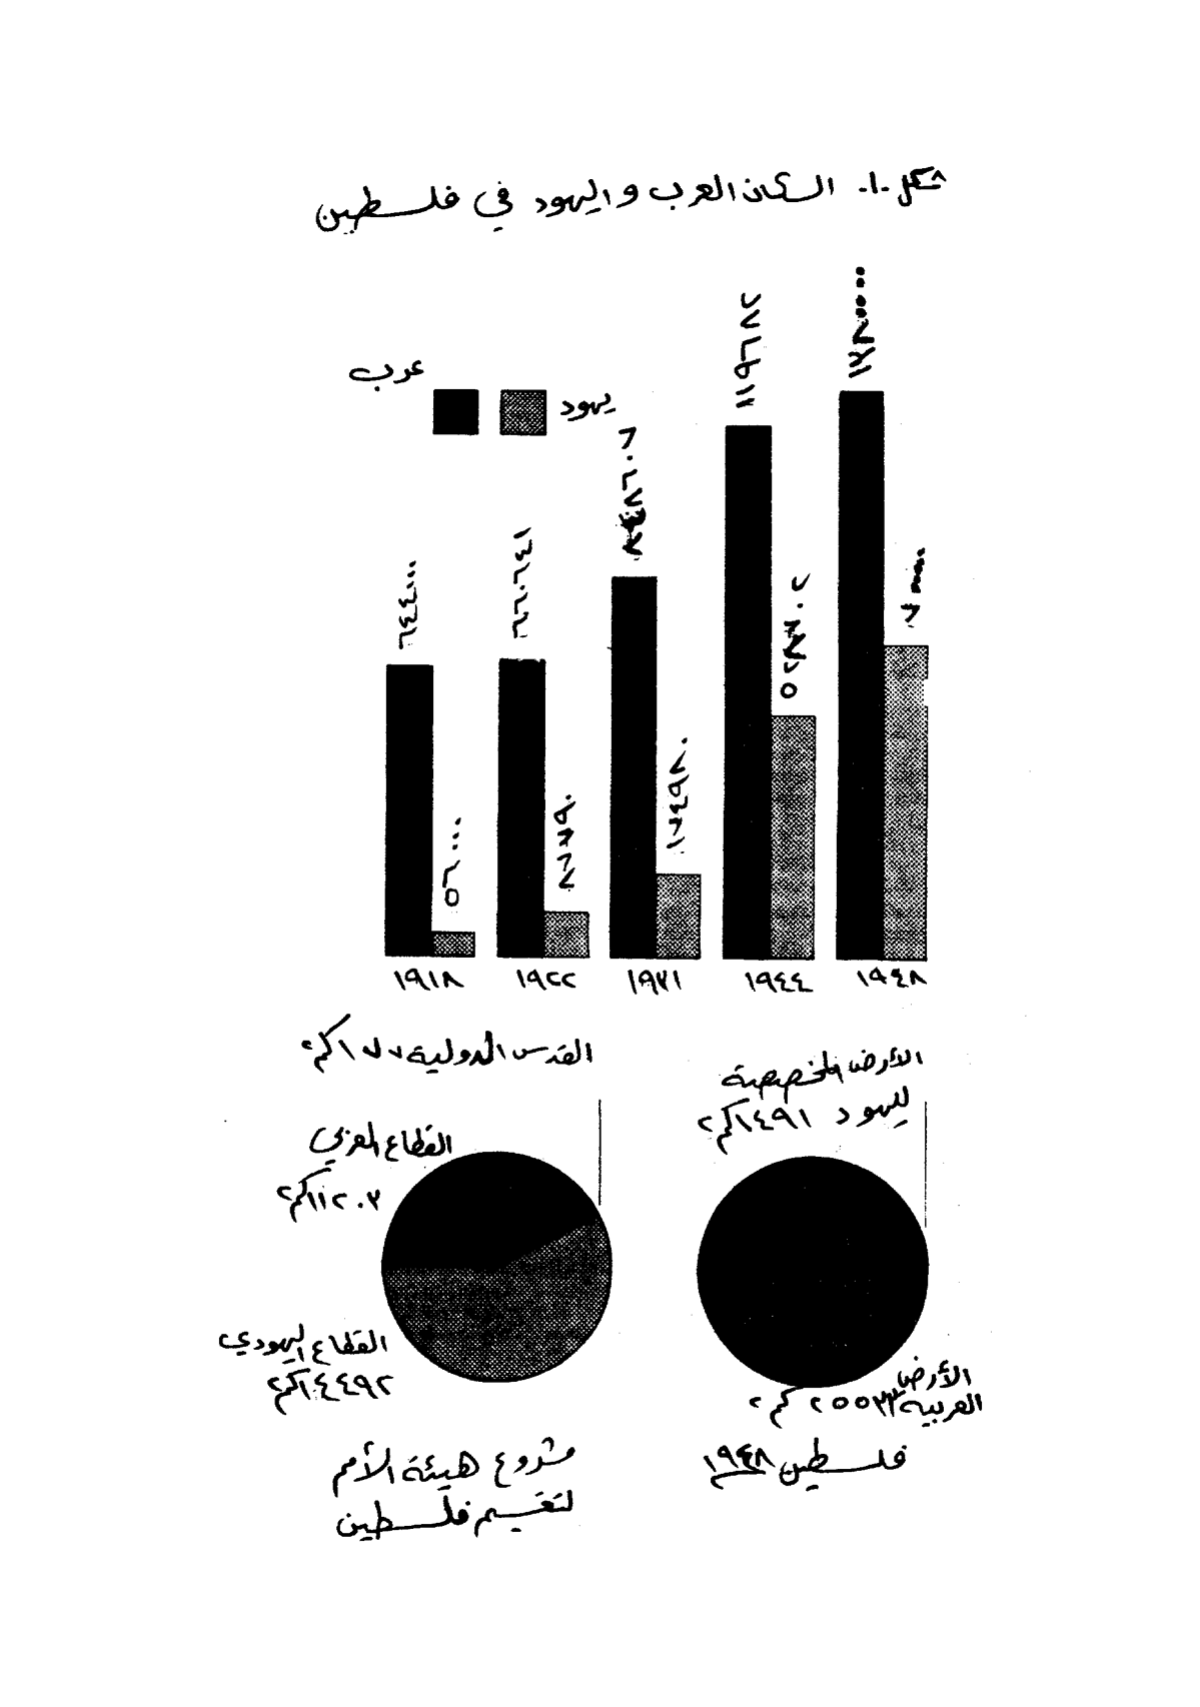 شكل -١- السكان العرب واليهود في فلسطين
عرب
يهود
٦٤٤٠٠٠
٥٦٠٠٠
٦٦٠٦٤١
١٧٤٩٨٠
١١٩٦٧٨٢
١٩١٨
١٩٢٢
١٩٣١
١٩٤٤
١٩٤٨
القدس الدولية ١٧٧ كم٢
القطاع العربي
١١٢٠٣ كم٢
القطاع اليهودي
١٤٤٩٢ كم٢
مشروع هيئة الأمم
لتقسيم فلسطين
الأرض المخصصة
لليهود ١٤٩١ كم٢
الأرض
العربية ٢٥٥٣٣ كم٢
فلسطين ١٩٤٨